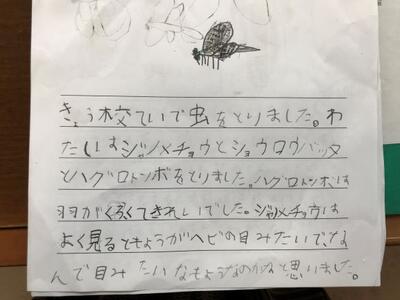 きょう校ていで虫をとりました。わ
たしはジャノメチョウとショウロウバッタ
とハグロトンボをとりました。ハグロトンボは
羽がくろくてきれいでした。ジャノメチョウは
よく見るともようがヘビの目みたいで、な
んで目みたいなもようなのかなと思いました。